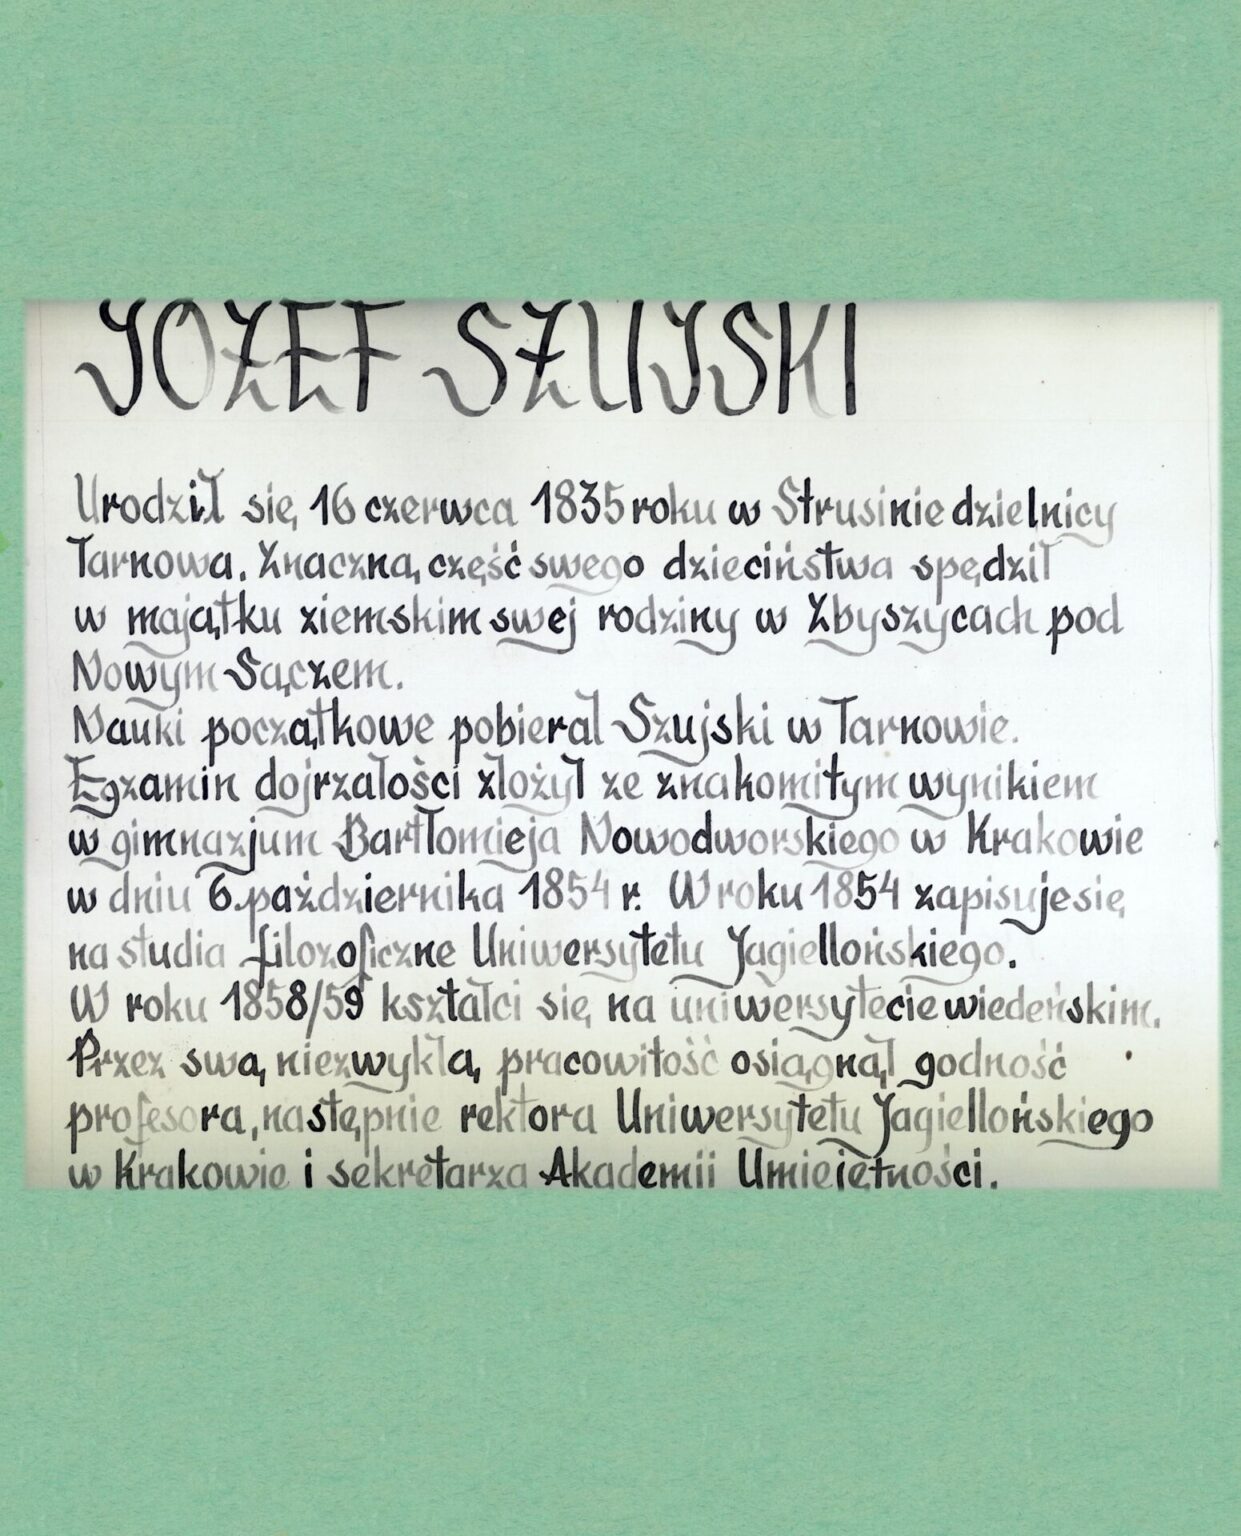 JÓZEF SZUJSKI
Urodził się 16 czerwca 1835 roku w Strusinie dzielnicy
Tarnowa. Znaczną część swego dzieciństwa spędził
w majątku ziemskim swej rodziny w Zbyszycach pod
Nowym Sączem.
Nauki początkowe pobierał Szujski w Tarnowie.
Egzamin dojrzałości złożył ze znakomitym wynikiem
w gimnazjum Bartłomieja Nowodworskiego w Krakowie
w dniu 6.października 1854 r. W roku 1854 zapisuje się
na studia filozoficzne Uniwersytetu Jagiellońskiego.
W roku 1858/59 kształci się na uniwersytecie wiedeńskim.
Przez swą niezwykłą pracowitość osiągnął godność
profesora, następnie rektora Uniwersytetu Jagiellońskiego
w Krakowie i sekretarza Akademii Umiejętności.